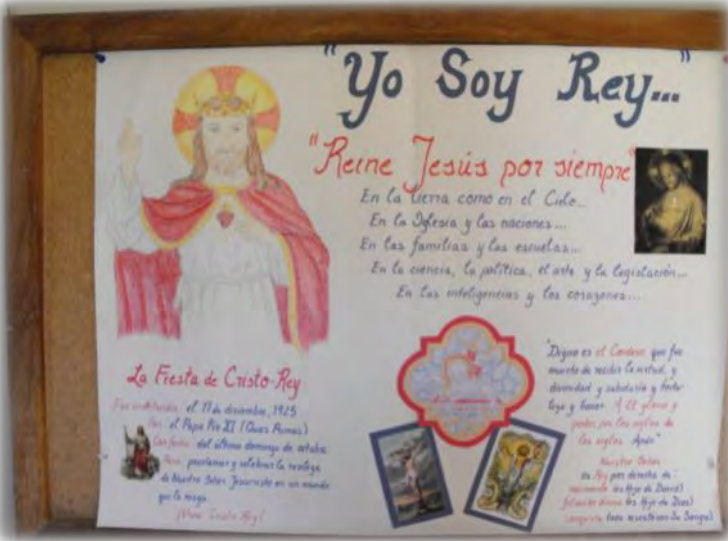 "Yo Soy Rey..."
"Reine Jesús por siempre"
En la tierra como en el Cielo...
En la Iglesia y las naciones...
En las familias y las escuelas...
En la ciencia, la política, el arte y la legislación...
En las inteligencias y los corazones...
La Fiesta de Cristo-Rey
Fue instituida: el 11 de diciembre, 1925
Por: el Papa Pío XI (Quas Primas)
Con fecha: del último domingo de octubre
Para: proclamar y celebrar la realeza
de Nuestro Señor Jesucristo en un mundo
que lo niega.
¡Viva Cristo Rey!
"Digno es el Cordero que fue
muerto de recibir la virtud, y
divinidad y sabiduría y forta-
leza y honor. A Él gloria y
poder por los siglos de
los siglos. Amén"
Nuestro Señor
es Rey por derecho de:
nacimiento (es Hijo de David)
filiación divina (es Hijo de Dios)
conquista (nos rescató con Su Sangre)